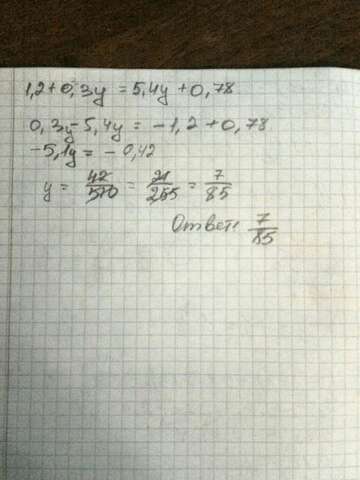 1,2+0,3y = 5,4y+0,78
0,3y-5,4y = -1,2+0,78
-5,1y = -0,42
y = 42/510 = 21/255 = 7/85
Ответ: 7/85